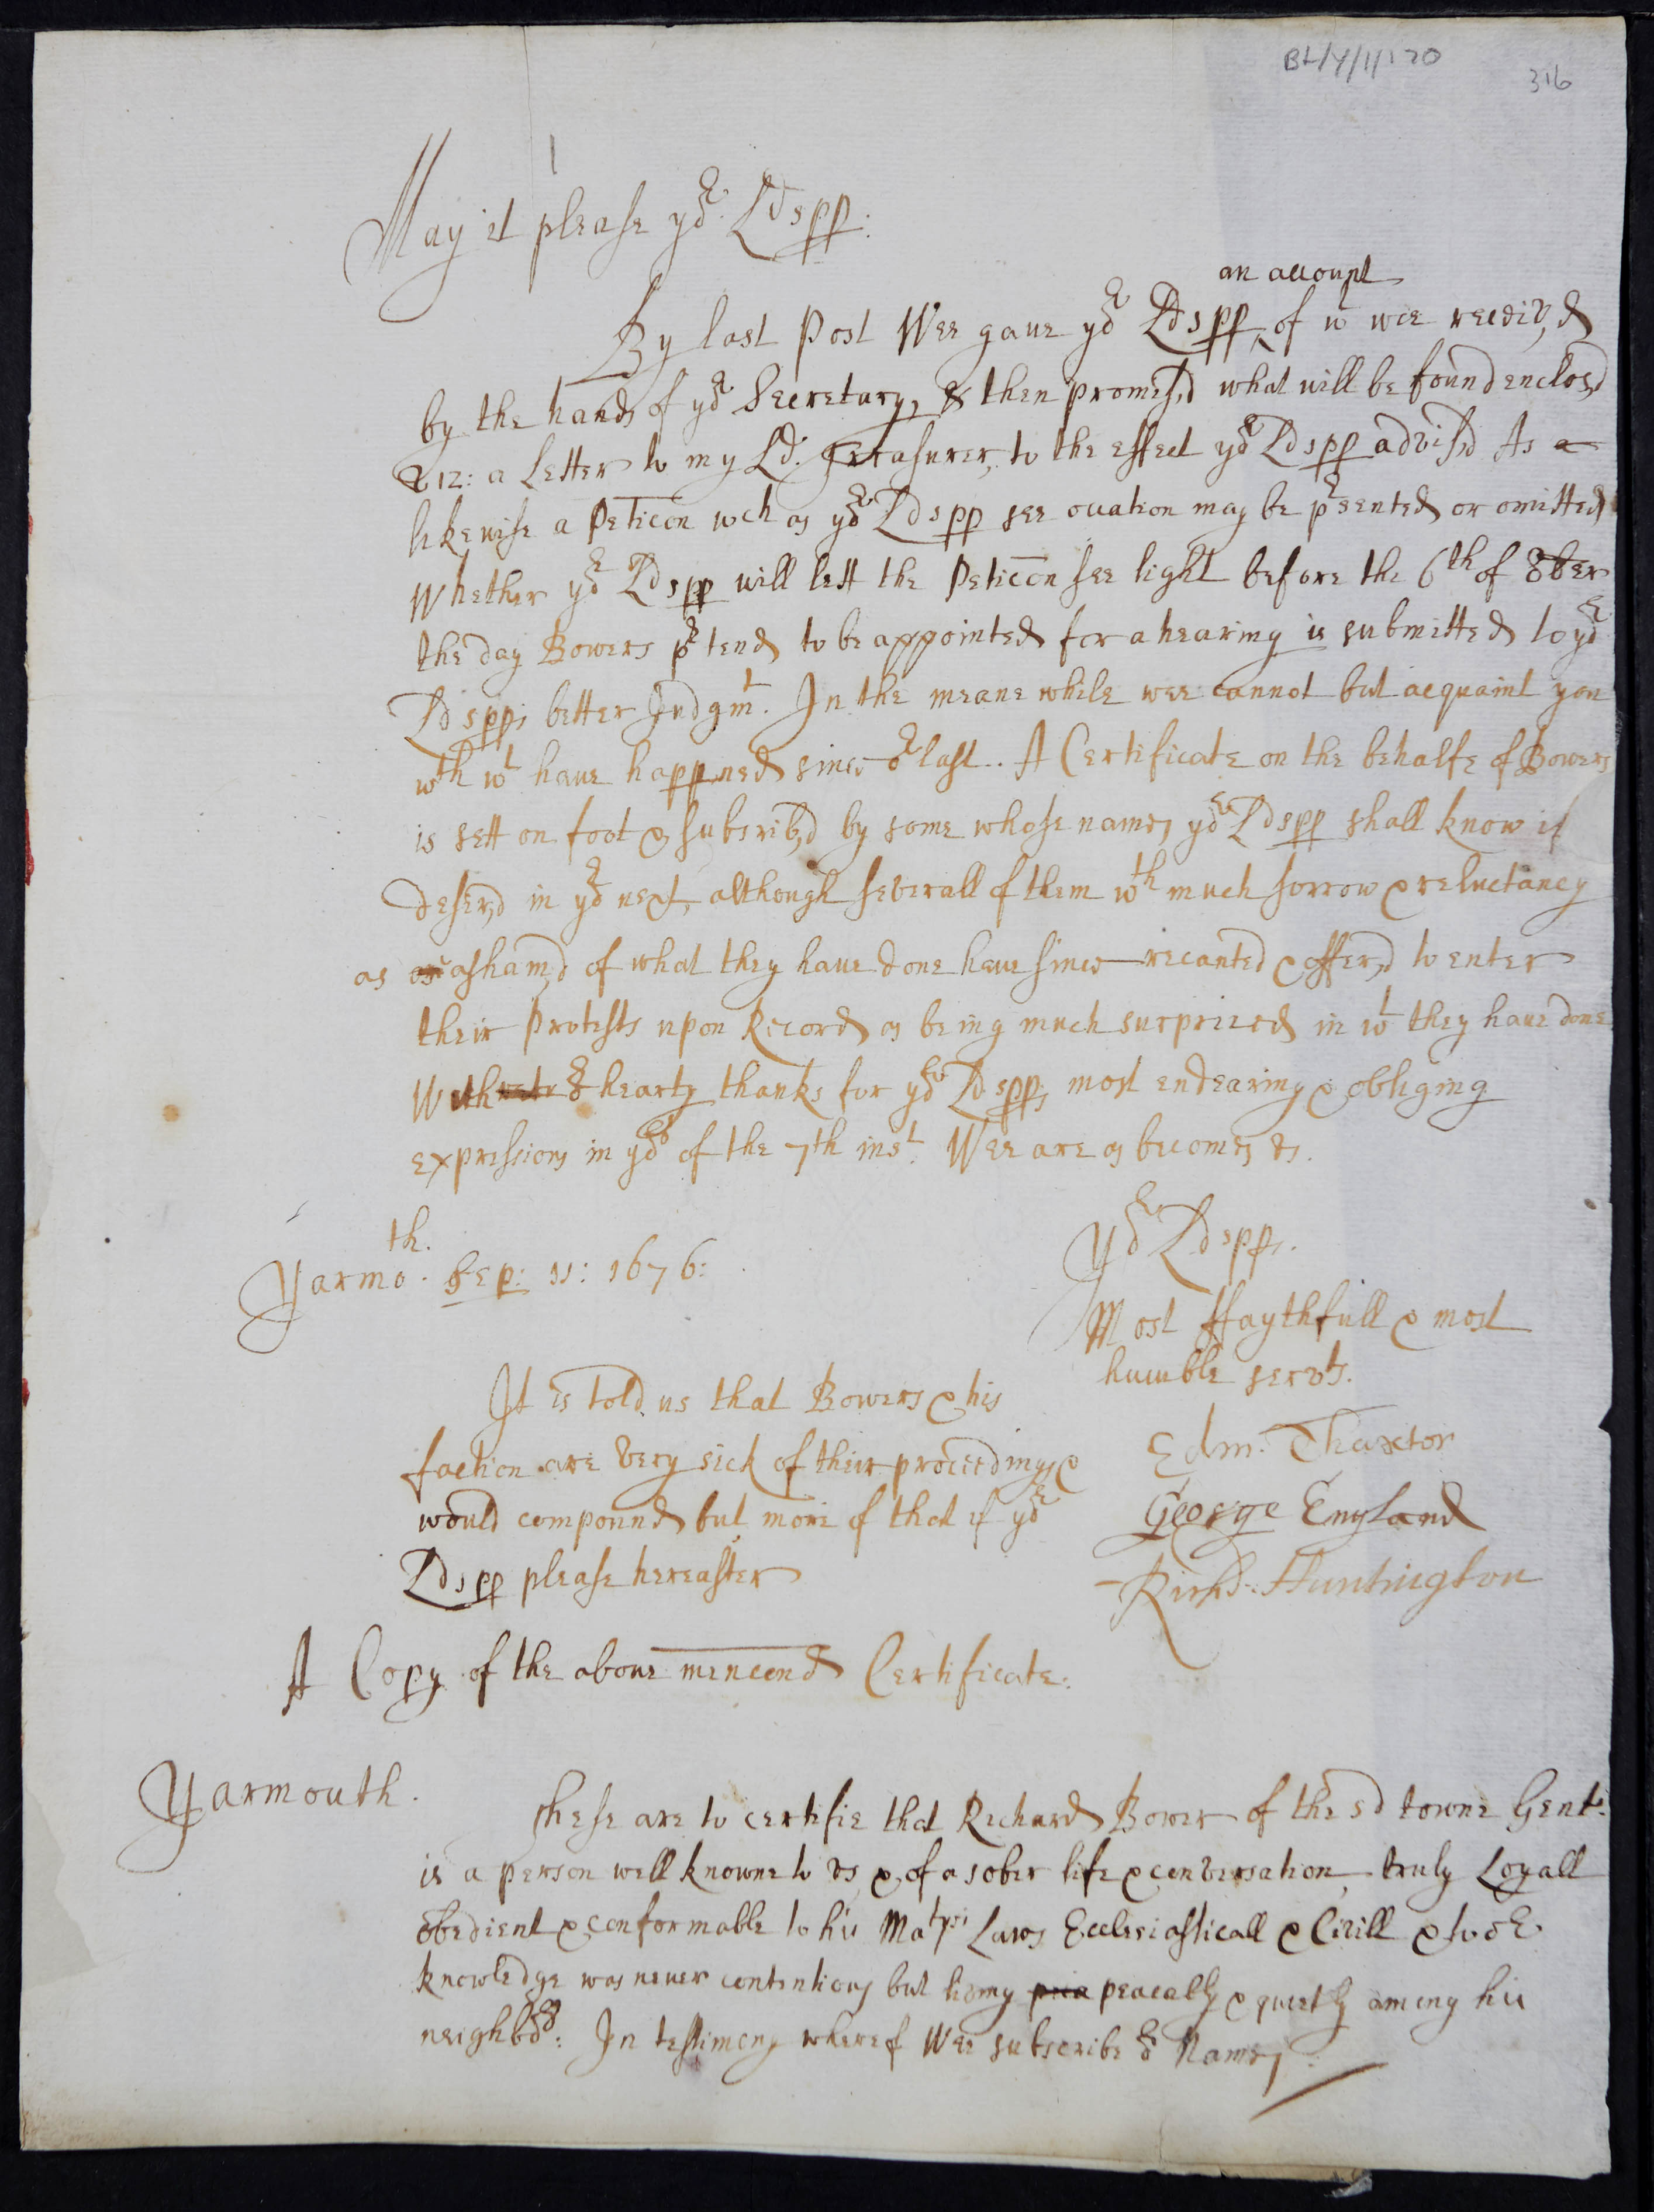 BL/Y/1/170
316
May it please yor Ldspp:
an accompt
By last Post Wee gave yor Ldspp, of wt wee receiv,d
by the hands of yor Secretary, & then promis,d what will be found enclos,d
viz: a Letter to my Ld. Treasurer, to the effect yor Ldspp advis,d As a
likewise a Peticon wch as yor Ldspp see occation may be pr sented or omitted
Whether yor Ldspp will lett the Peticon see light before the 6th of 8ber
the day Bowers pr tends to be appointed for a hearing is submitted to yor
Ldspps better Judgmt. In the meane while wee cannot but acquaint you
wth wt have happned since or last. A Certificate on the behalfe of Bowers
is sett on foot & subscrib,d by some whose names yor Ldspp shall know if
desier,d in yor next, although severall of them wth much sorrow & reluctancy
as asham,d of what they have done have since recanted & offer,d to enter
their Protests upon Record as being much surprized in wt they have done
With or hearty thanks for yor Ldspps most endearing & obliging
expressions in yors of the 7th inst. Wee are as becomes us.
Yarmoth. Sep: 11: 1676:
Yor Ldspps.
Most ffaythfull & most
humble servts.
Edm: Thaxter
George England
Richd: Huntington
It is told us that Bowers & his
faction are very sick of their proceedings &
would compound, but more of that if yor
Ldspp please hereafter
A Copy of the above mencond Certificate:
Yarmouth.
These are to certifie that Richard Bower of the sd towne Gent:
is a person well knowne to vs & of a sober life & conversation, truly Loyall
obedient & conformable to his Matyes Laws Ecclesiasticall & Civill & to or
knowledge was never contentious but living peaceably & quietly among his
neighbors: In testimony whereof Wee subscribe or Names